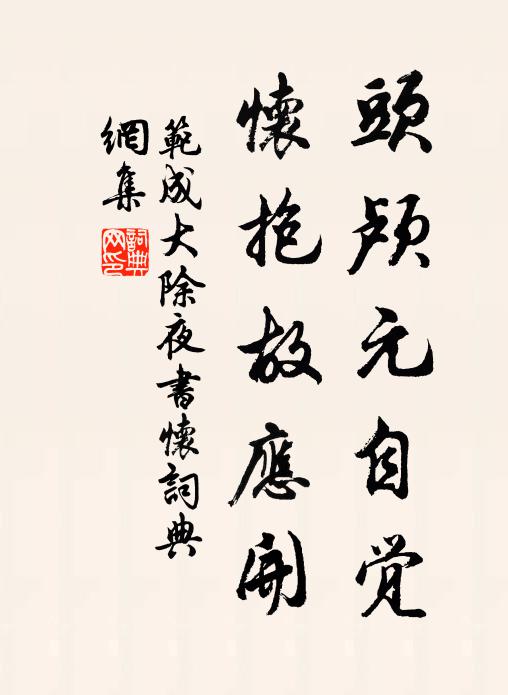 頭颅元自觉
懷抱故應開
範成大除夜書懷詞典
網集
詞典
网印